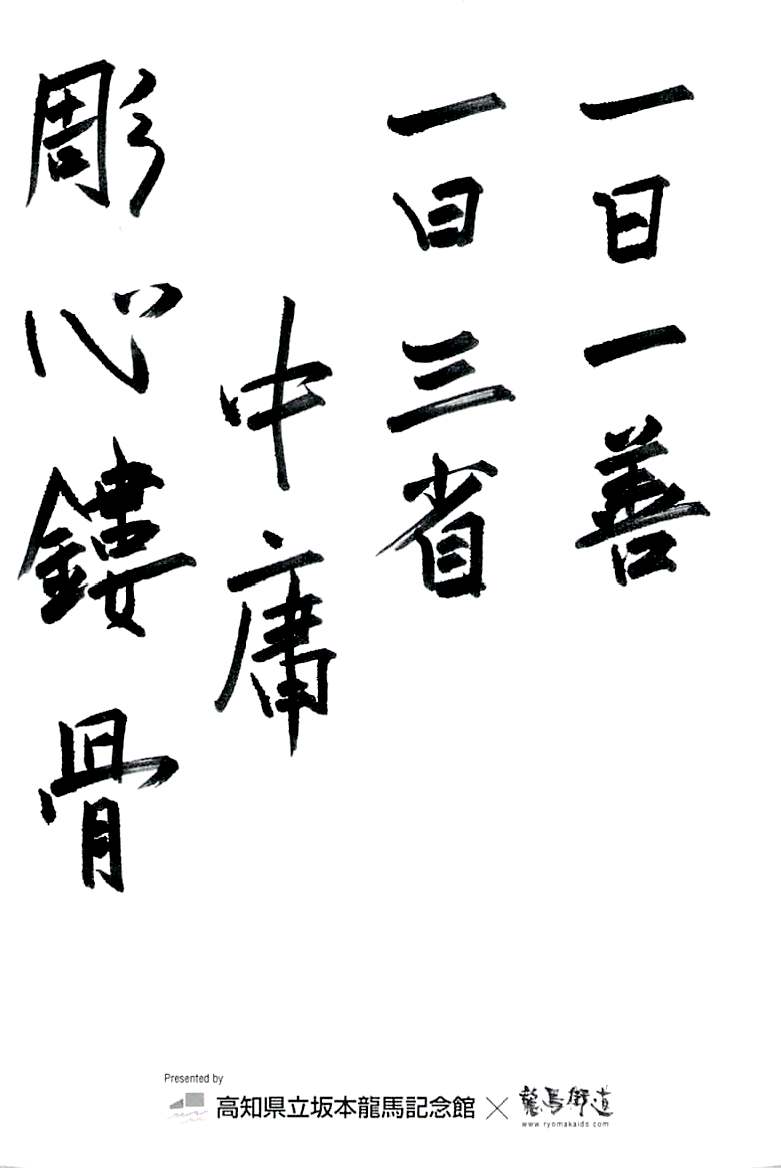 一日一善
一日三省
中庸
彫心鏤骨
Presented by
高知県立坂本龍馬記念館 × 龍馬街道
www.ryomakaido.com